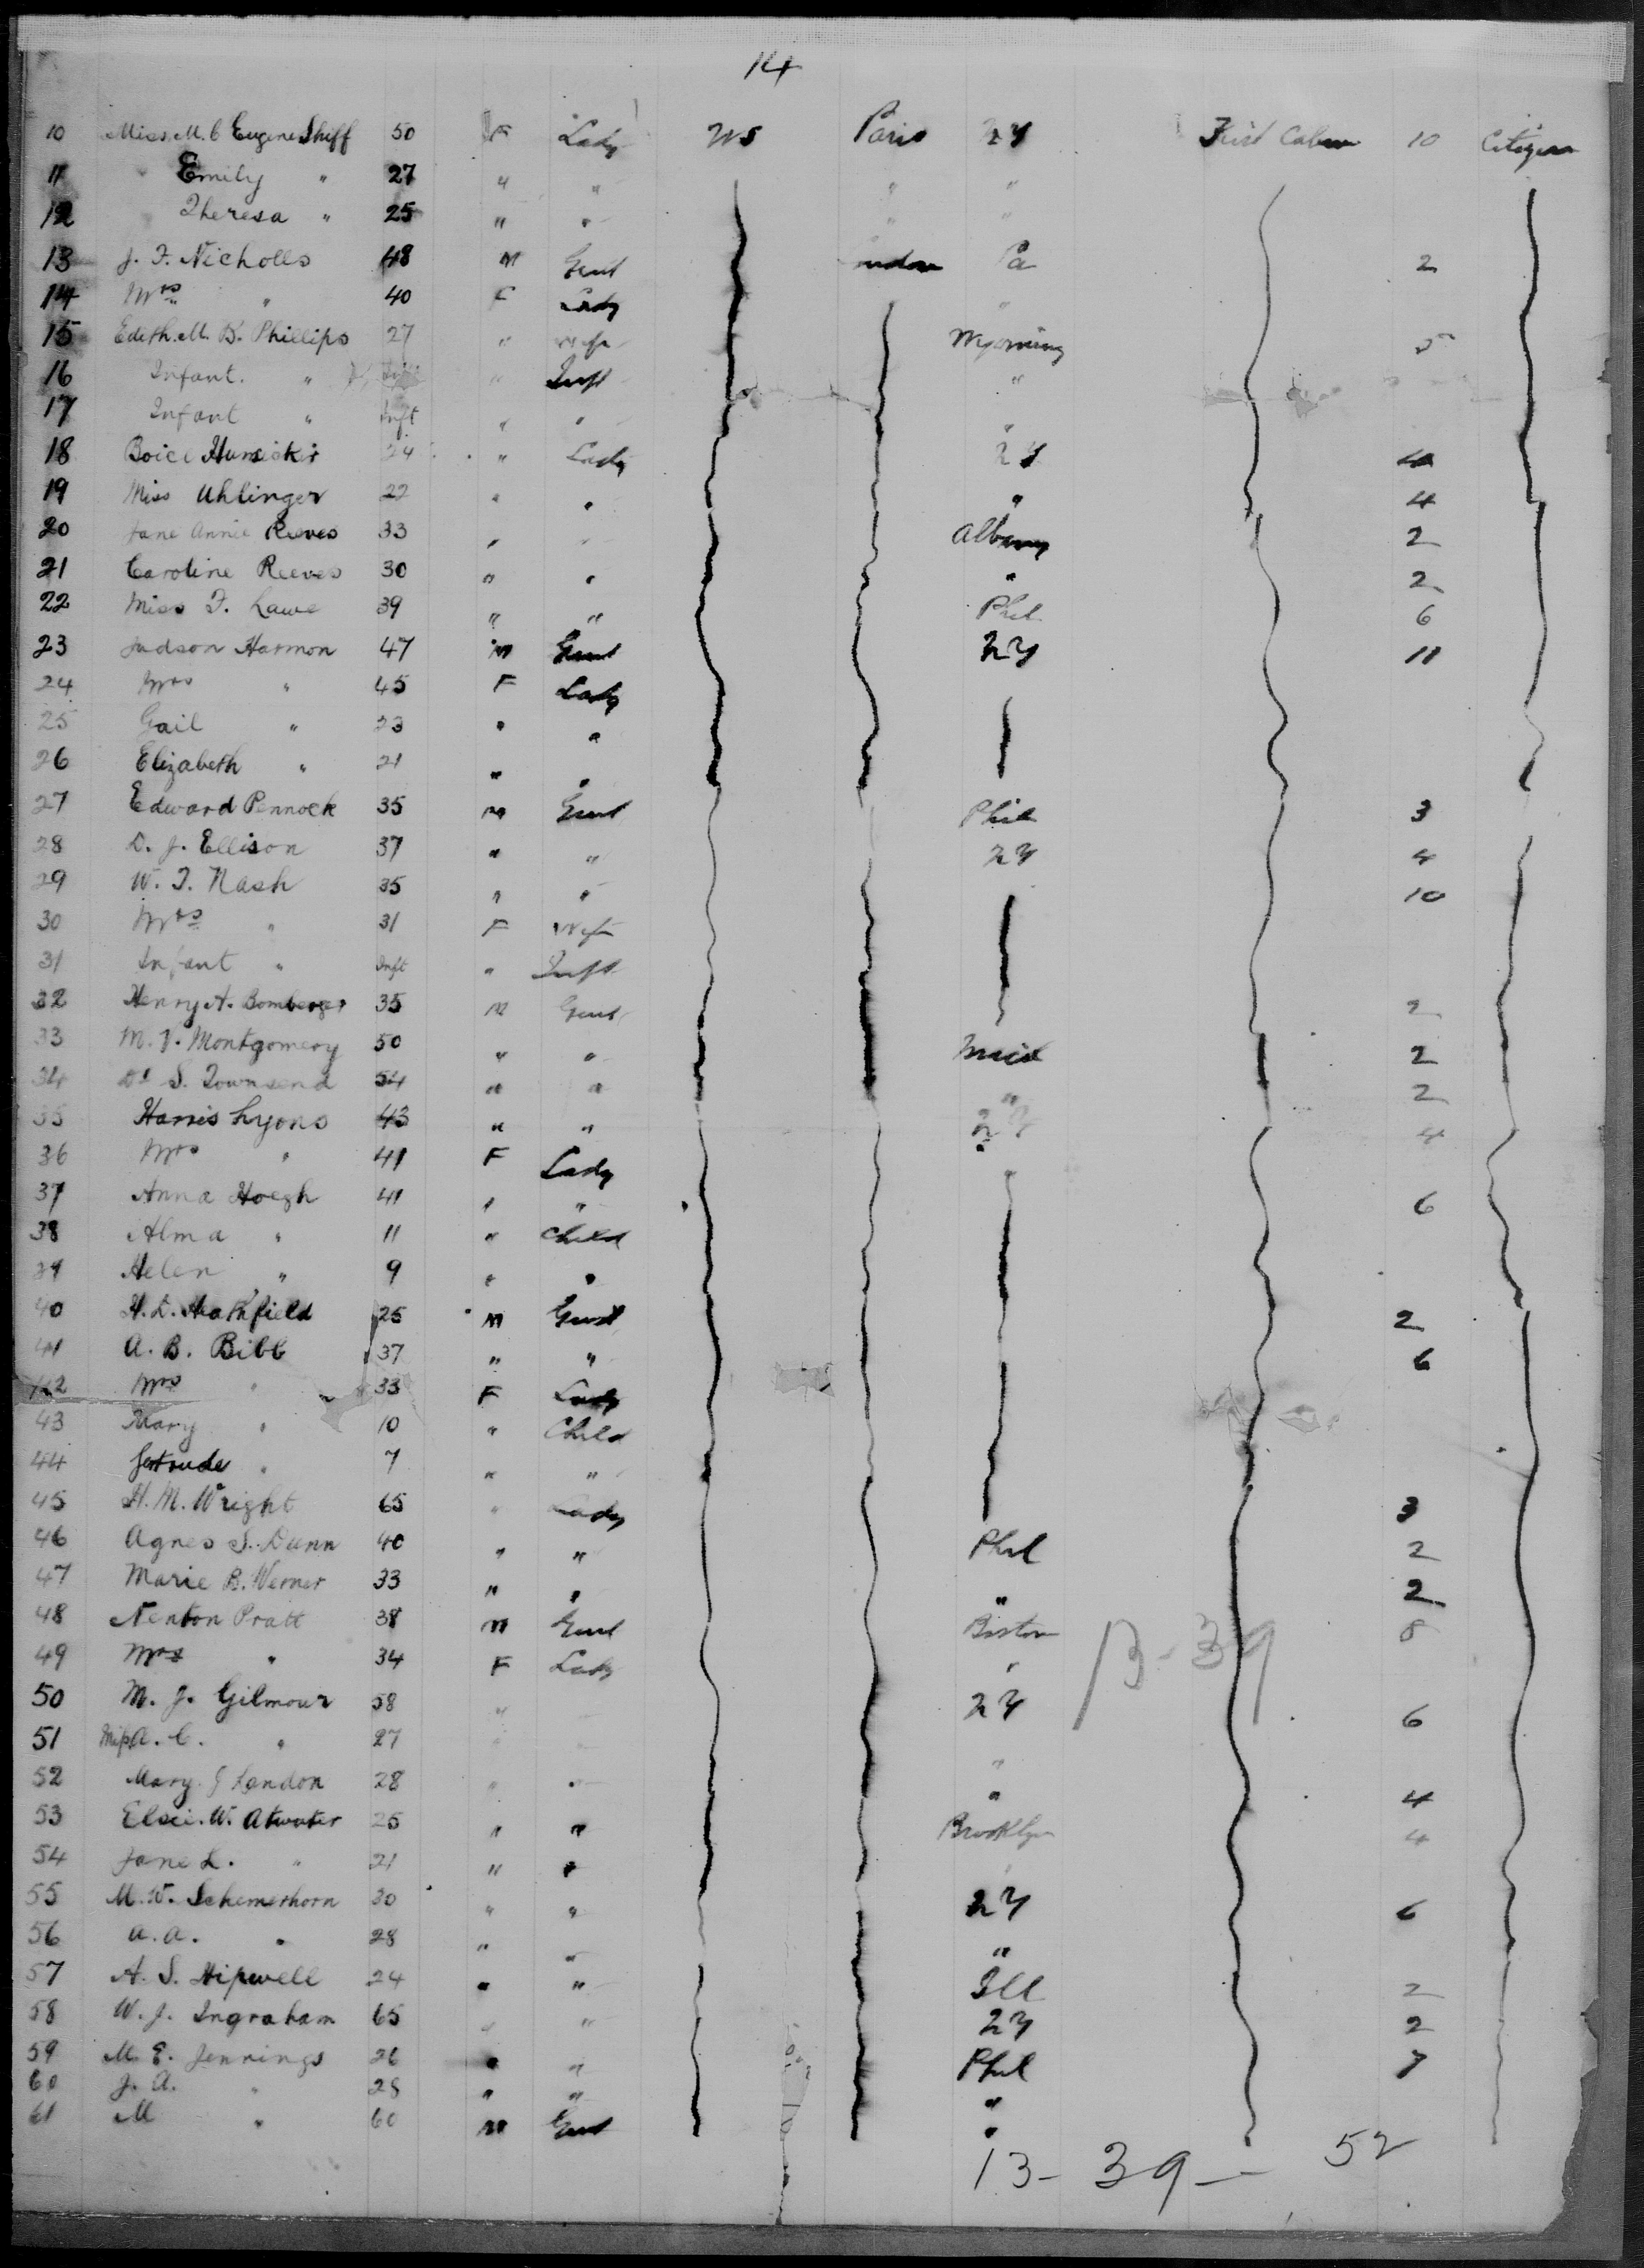 14
10 Miss. M. C Eugene Shiff 50 F Lady US Paris NY First Cabin 10 Citizen
11 " Emily " 27 " " " "
12 Theresa " 25 " " " "
13 J. F. Nicholls 48 M Gent Pa 2
14 Mrs " 40 F Lady "
15 Edith. M. B. Phillips 27 " Wife Wyoming 5
16 Infant. " " Inft "
17 Infant " Inft " " "
18 Boice 24 " Lady NY
19 Miss Uhlinger 22 " " " 4
20 Jane Annie Reeves 33 " " Albany 2
21 Caroline Reeves 30 " " " 2
22 Miss F. Lawe 39 " " Phil 6
23 Judson Harmon 47 M Gent NY 11
24 Mrs " 45 F Lady
25 Gail " 23 " "
26 Elizabeth " 21 " "
27 Edward Pennock 35 M Gent Phil 3
28 D. J. Ellison 37 " " NY 4
29 W. T. Nash 35 " " 10
30 Mrs " 31 F Wife
31 Infant " Inft " Inft
32 Henry A. Bomberger 35 M Gent 2
33 M. V. Montgomery 50 " " Mich 2
34 Dr S. Townsend 54 " " " 2
35 Harris Lyons 43 " " NY 4
36 Mrs " 41 F Lady "
37 Anna Hoegh 41 " " 6
38 Alma " 11 " Child
39 Helen " 9 " "
40 H. D. Heathfield 25 M Gent 2
41 A. B. Bibb 37 " " 6
42 Mrs " 33 F Lady
43 Mary " 10 " Child
44 Gertrude " 7 " "
45 H. M. Wright 65 " Lady 3
46 Agnes S. Dunn 40 " " Phil 2
47 Marie B. Werner 33 " " " 2
48 Newton Pratt 38 M Gent Boston 8
49 Mrs " 34 F Lady "
13-39
50 M. J. Gilmour 58 " " NY 6
51 Miss A. C. " 27 " " "
52 Mary. J Landon 28 " " " 4
53 Elsie. W. Atwater 25 " " Brooklyn 4
54 Jane L. " 21 " " "
55 M. W. Schemerhorn 30 " " NY 6
56 A. A. " 28 " " "
57 A. S. Hipwell 24 " " Ill 2
58 W. J. Ingraham 65 " " NY 2
59 M. E. Jennings 26 " " Phil 7
60 J. A. " 28 " " "
61 M " 60 M Gent "
13- 39- 52